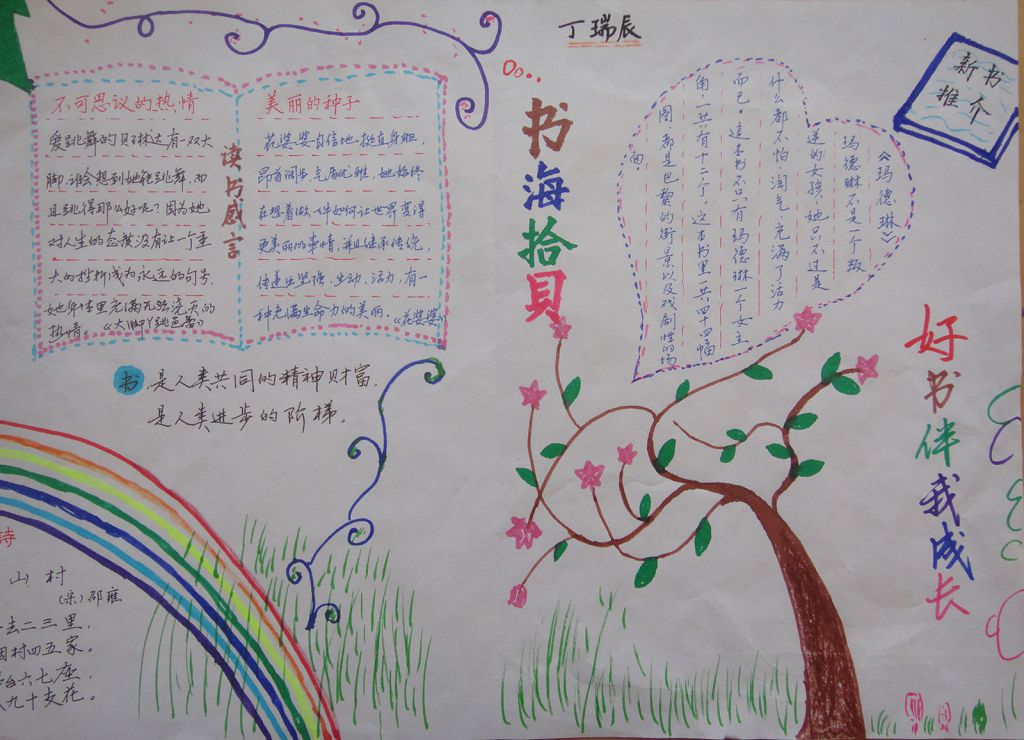 丁瑞辰
不可思议的热情
爱跳舞的贝琳达有一双大
脚,谁会想到她能跳舞,而
且跳得那么好呢?因为她
对人生的态度没有让一个重
大的挫折成为永远的句号,
她身体里充满无法浇灭的
热情。《大脚丫跳芭蕾》
读书感言
美丽的种子
花婆婆自信地挺直身躯,
昂首阔步,气质优雅,她始终
在想着做一件如何让世界变得
更美丽的事情,并且继承传统,
传递生坚强,生动,活力,有一
种充满生命力的美丽.《花婆婆》
书是人类共同的精神财富.
是人类进步的阶梯.
书海拾贝
新书
推介
《玛德琳》
玛德琳不是一个叛
逆的女孩,她只不过是
什么都不怕,淘气,充满了活力
而已,这本书不只有玛德琳一个女主
角一共有十二个,这本书里一共四十四幅
图都是巴黎的街景以及戏剧性的场
面
好书伴我成长
诗
山村
(宋)邵雍
去二三里,
村四五家。
台六七座,
九十支花。